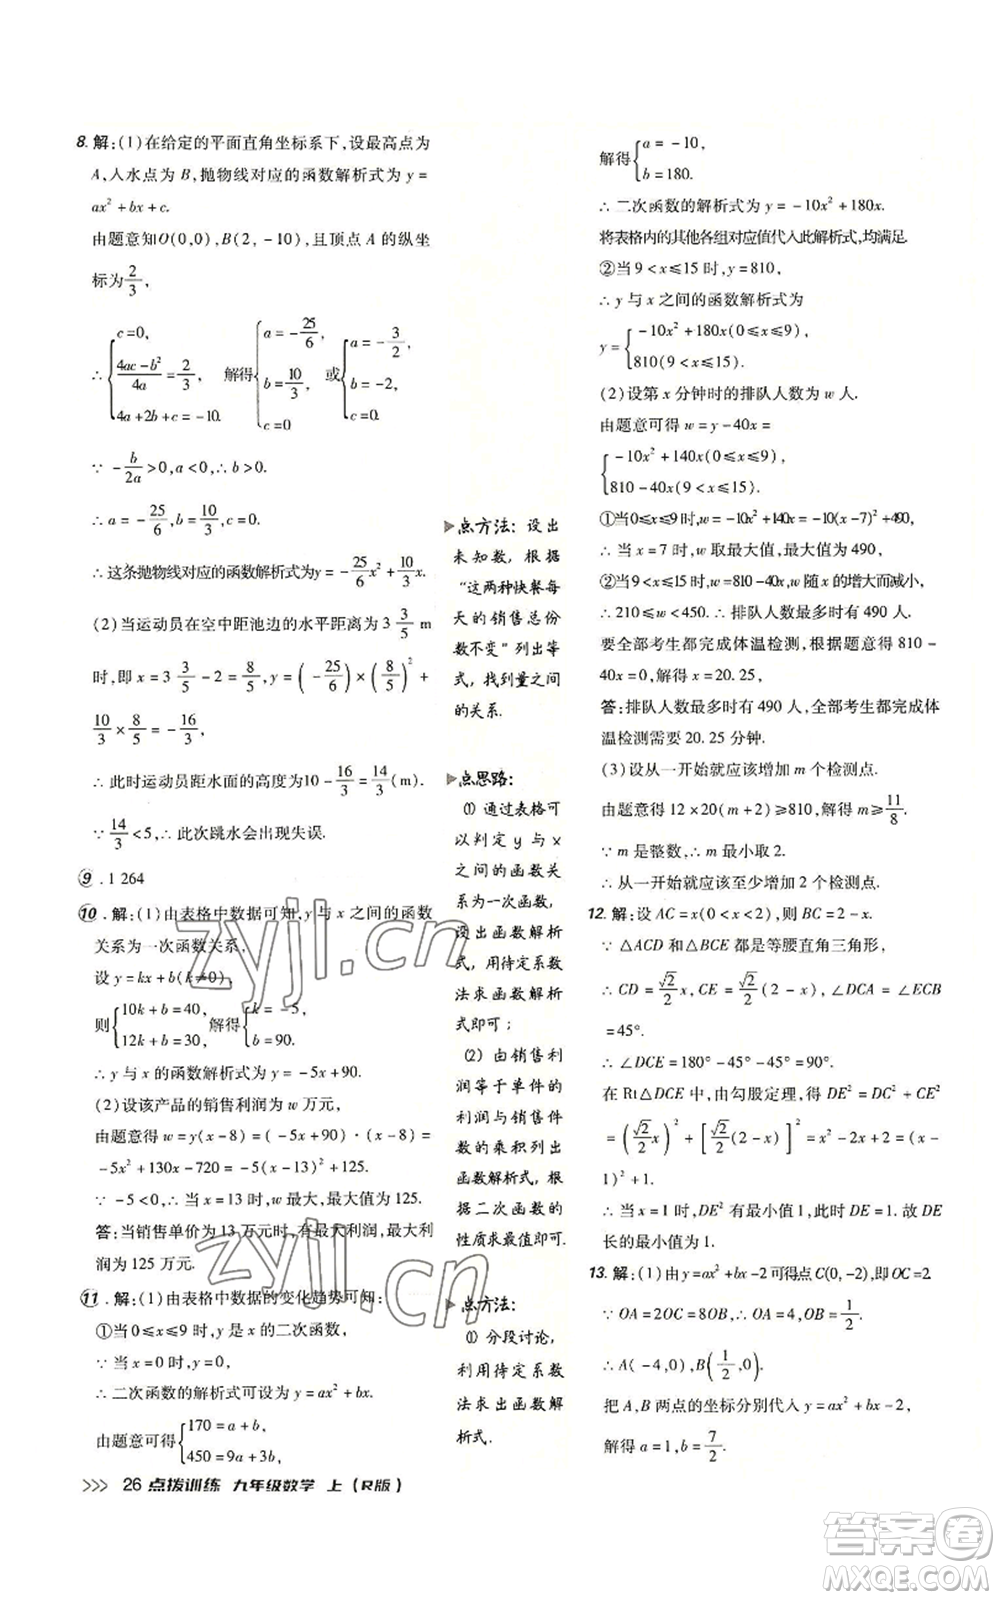 8. 解:(1)在给定的平面直角坐标系下,设最高点为
A,入水点为 B,抛物线对应的函数解析式为 y =
ax² + bx + c.
由题意知O(0,0),B(2,-10),且顶点 A 的纵坐
标为 2/3,
∴ { c=0, (4ac-b²)/4a = 2/3, 4a+2b+c=-10. 解得 { a=-25/6, b=10/3, c=0 或 { a=-3/2, b=-2, c=0.
∵ -b/2a >0,a<0,∴ b>0.
∴ a = -25/6,b = 10/3,c=0.
∴ 这条抛物线对应的函数解析式为y = -25/6 x² + 10/3 x.
(2)当运动员在空中距池边的水平距离为 3 3/5 m
时,即 x = 3 3/5 - 2 = 8/5 时,y = (-25/6) × (8/5)² +
10/3 × 8/5 = -16/3,
∴ 此时运动员距水面的高度为10 - 16/3 = 14/3 (m).
∵ 14/3 <5,∴ 此次跳水会出现失误.
9. 1 264
10. 解:(1)由表格中数据可知,y 与 x 之间的函数
关系为一次函数关系,
设 y = kx + b(k≠0),
则 { 10k+b=40, 12k+b=30, 解得 { k=-5, b=90.
∴ y 与 x 的函数解析式为 y = -5x + 90.
(2)设该产品的销售利润为 w 万元,
由题意得 w = y(x-8) = (-5x+90)·(x-8) =
-5x² + 130x - 720 = -5(x-13)² + 125.
∵ -5<0,∴ 当 x = 13 时,w 最大,最大值为 125.
答:当销售单价为 13 万元时,有最大利润,最大利
润为 125 万元.
11. 解:(1)由表格中数据的变化趋势可知:
①当 0≤x≤9 时,y 是 x 的二次函数,
∵ 当 x=0 时,y=0,
∴ 二次函数的解析式可设为 y = ax² + bx,
由题意可得 { 170 = a + b, 450 = 9a + 3b,
点方法: 设出
未知数,根据
“这两种快餐每
天的销售总份
数不变”列出等
式,找到量之间
的关系.
点思路:
(1) 通过表格可
以判定 y 与 x
之间的函数关
系为一次函数,
设出函数解析
式,用待定系数
法求函数解析
式即可;
(2) 由销售利
润等于单件的
利润与销售件
数的乘积列出
函数解析式,根
据二次函数的
性质求最值即可.
点方法:
(1) 分段讨论,
利用待定系数
法求出函数解
析式.
解得 { a = -10, b = 180.
∴ 二次函数的解析式为 y = -10x² + 180x.
将表格内的其他各组对应值代入此解析式,均满足.
②当 9<x≤15 时,y = 810,
∴ y 与 x 之间的函数解析式为
y = { -10x² + 180x(0≤x≤9), 810(9<x≤15).
(2)设第 x 分钟时的排队人数为 w 人.
由题意可得 w = y - 40x =
{ -10x² + 140x(0≤x≤9), 810-40x(9<x≤15).
①当0≤x≤9时,w=-10x²+140x=-10(x-7)²+490,
∴ 当 x = 7 时,w 取最大值,最大值为 490,
②当9<x≤15时,w=810-40x,w随 x 的增大而减小,
∴ 210≤w<450. ∴ 排队人数最多时有 490 人.
要全部考生都完成体温检测,根据题意得 810 -
40x = 0,解得 x = 20. 25,
答:排队人数最多时有 490 人,全部考生都完成体
温检测需要 20. 25 分钟.
(3)设从一开始就应该增加 m 个检测点.
由题意得 12×20(m+2)≥810,解得 m≥11/8.
∵ m 是整数,∴ m 最小取 2.
∴ 从一开始就应该至少增加 2 个检测点.
12. 解:设 AC = x(0<x<2),则 BC = 2-x.
∵ △ACD 和△BCE 都是等腰直角三角形,
∴ CD = √2/2 x,CE = √2/2 (2-x),∠DCA = ∠ECB
=45°.
∴ ∠DCE = 180° - 45° - 45° = 90°.
在 Rt△DCE 中,由勾股定理,得 DE² = DC² + CE²
= (√2/2 x)² + [√2/2 (2-x)]² = x² - 2x + 2 = (x-
1)² + 1.
∴ 当 x = 1 时,DE² 有最小值 1,此时 DE = 1. 故 DE
长的最小值为 1.
13. 解:(1)由 y=ax²+bx-2可得点 C(0,-2),即 OC=2
∵ OA = 2OC = 8OB,∴ OA = 4,OB = 1/2.
∴ A(-4,0),B(1/2,0).
把 A,B 两点的坐标分别代入 y = ax² + bx - 2,
解得 a = 1,b = 7/2.
>>> 26 点拨训练 九年级数学 上(R版)
zyjl.cn
zyjl.cn
答案圈
MXQE.COM